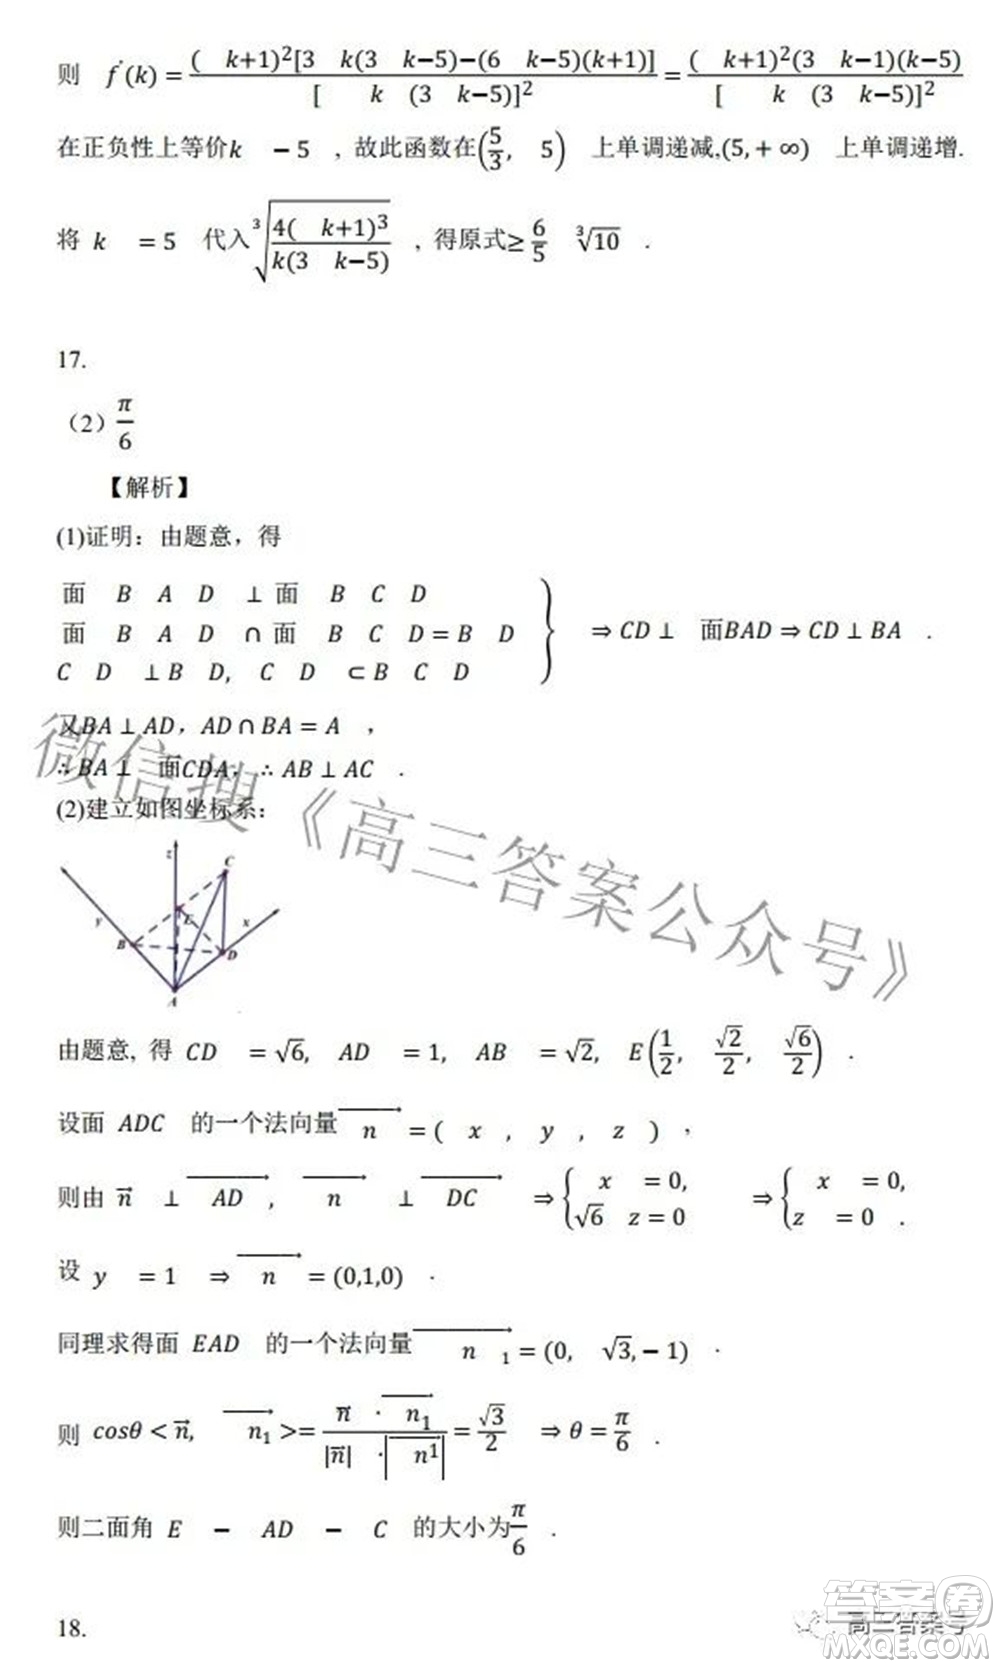 则 f'(k)=\frac{(k+1)^2[3k(3k-5)-(6k-5)(k+1)]}{[k(3k-5)]^2}=\frac{(k+1)^2(3k-1)(k-5)}{[k(3k-5)]^2}
在正负性上等价k-5,故此函数在(\frac{5}{3},5)上单调递减,(5,+∞)上单调递增.
将 k=5 代入\sqrt[3]{\frac{4(k+1)^3}{k(3k-5)}},得原式≥\frac{6}{5}\sqrt[3]{10}.
17.
(2)\frac{π}{6}
【解析】
(1)证明:由题意,得
面 B A D ⊥ 面 B C D
面 B A D ∩ 面 B C D = B D
C D ⊥ B D, C D ⊂ B C D
⇒ CD ⊥ 面BAD ⇒ CD ⊥ BA .
又BA ⊥ AD, AD ∩ BA = A ,
∴ BA ⊥ 面CDA, ∴ AB ⊥ AC .
(2)建立如图坐标系:
z
C
y
E
x
B
D
A
由题意, 得 CD = √6, AD = 1, AB = √2, E(\frac{1}{2}, \frac{√2}{2}, \frac{√6}{2}) .
设面 ADC 的一个法向量\vec{n} = ( x , y , z ) ,
则由 \vec{n} ⊥ \vec{AD}, \vec{n} ⊥ \vec{DC} ⇒ { x = 0, √6 z = 0 ⇒ { x = 0, z = 0 .
设 y = 1 ⇒ \vec{n} = (0,1,0) .
同理求得面 EAD 的一个法向量\vec{n_1} = (0, √3, -1) .
则 cosθ < \vec{n}, \vec{n_1} >= \frac{\vec{n} · \vec{n_1}}{|\vec{n}| · |\vec{n^1}|} = \frac{√3}{2} ⇒ θ = \frac{π}{6} .
则二面角 E - AD - C 的大小为\frac{π}{6} .
18.
微信搜《高三答案公众号》
高三答案号
答案卷
MXQE.COM